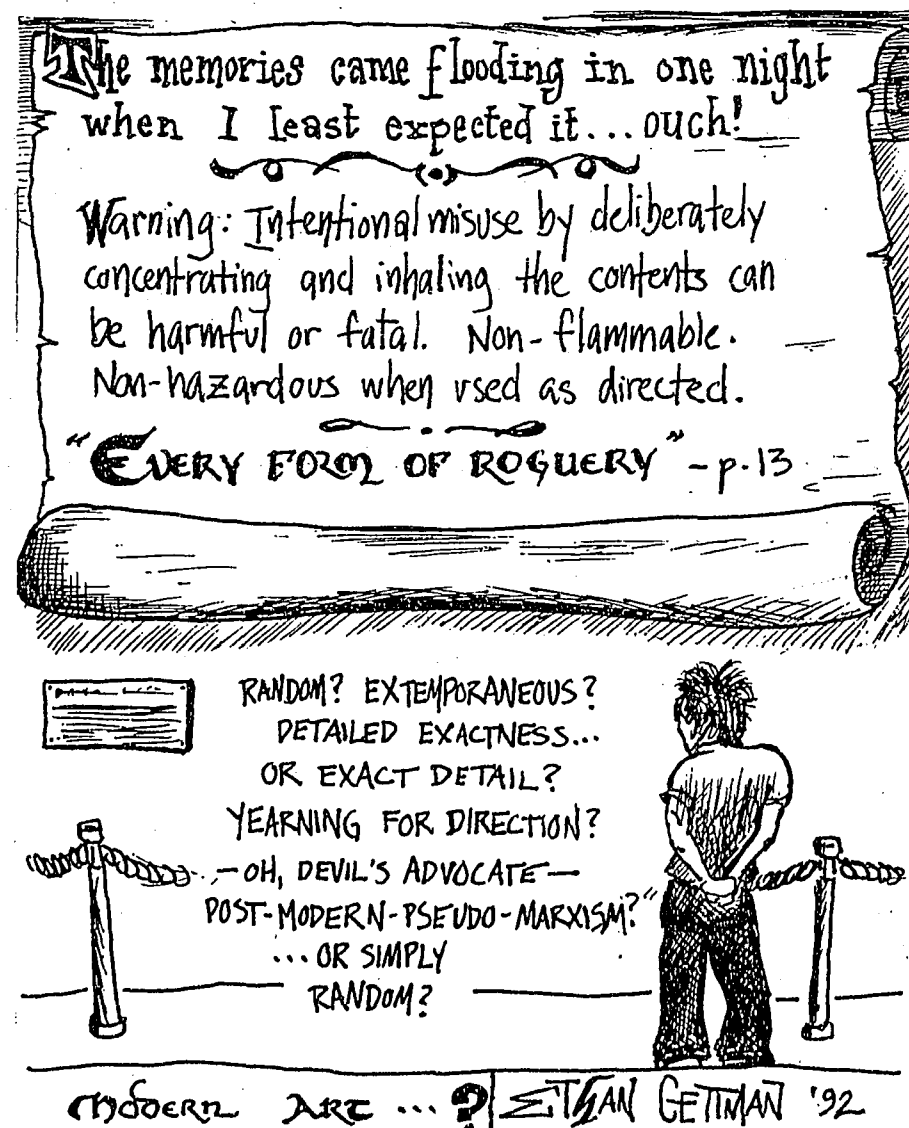 The memories came flooding in one night
when I least expected it... ouch!
Warning: Intentional misuse by deliberately
concentrating and inhaling the contents can
be harmful or fatal. Non-flammable.
Non-hazardous when used as directed.
"EVERY FORM OF ROGUERY" - p. 13
RANDOM? EXTEMPORANEOUS?
DETAILED EXACTNESS...
OR EXACT DETAIL?
YEARNING FOR DIRECTION?
—OH, DEVIL'S ADVOCATE—
POST-MODERN-PSEUDO-MARXISM?"
...OR SIMPLY
RANDOM?
MODERN ART ...? ETHAN GETTMAN '92